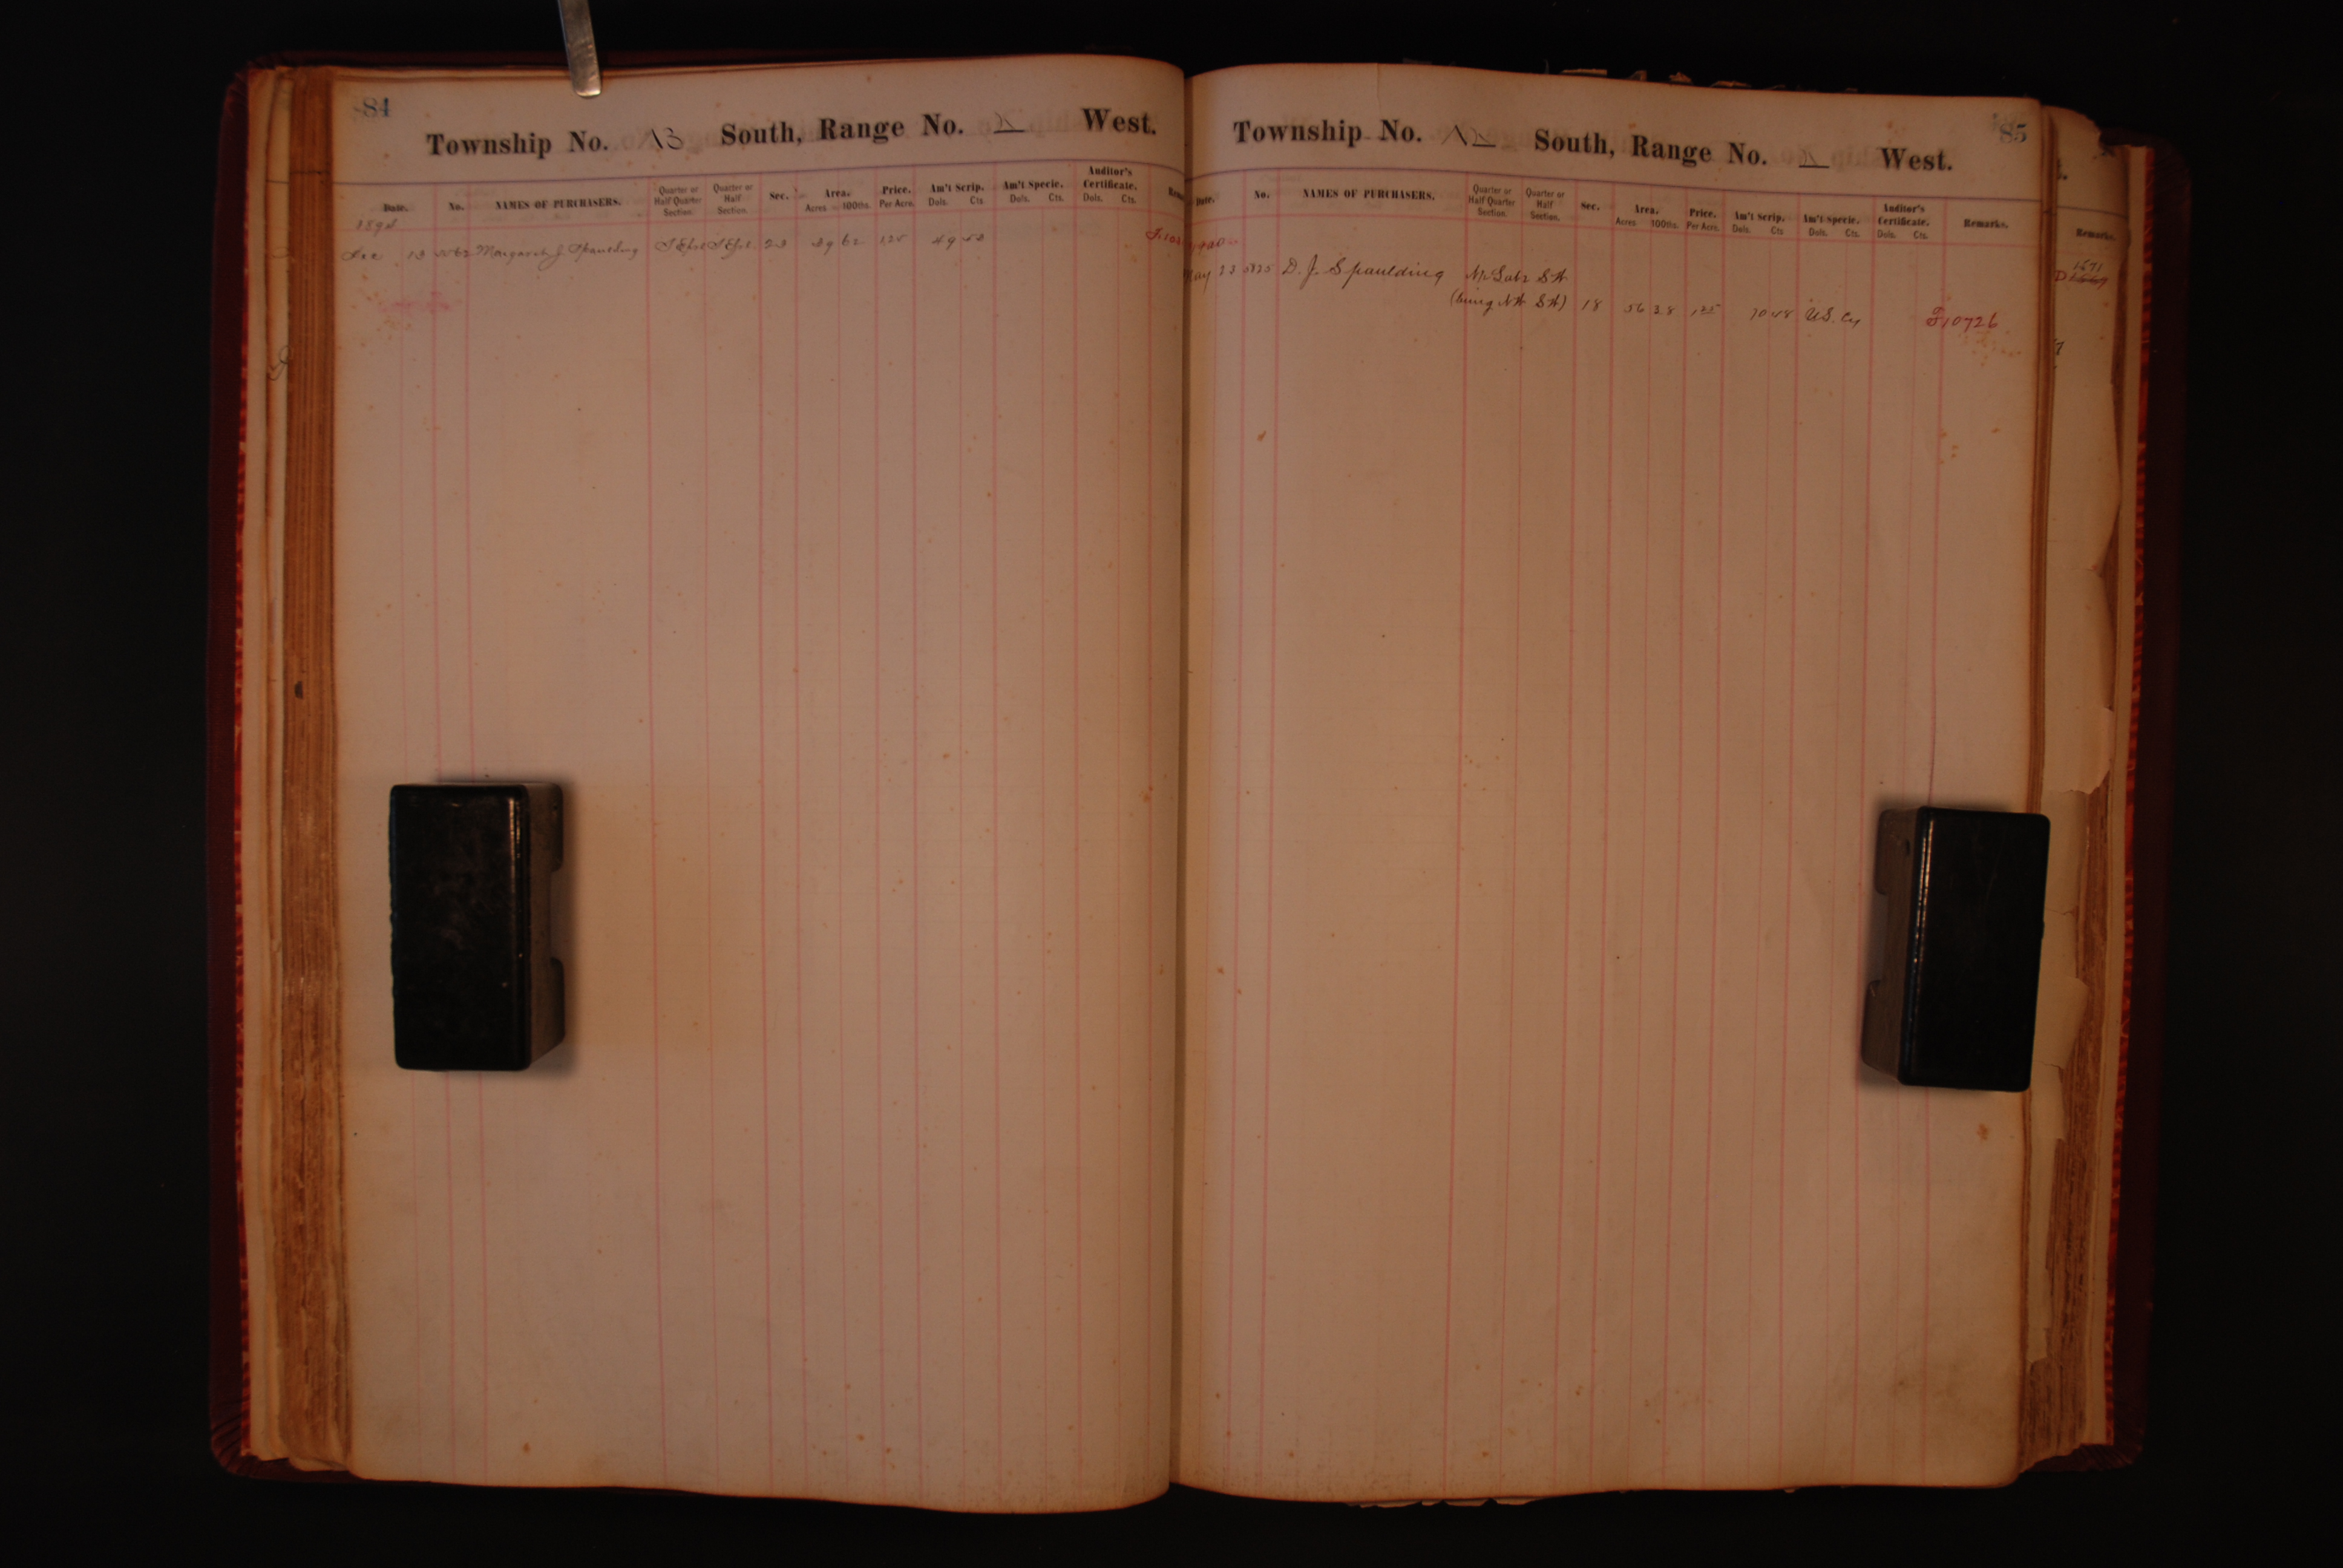 84
Township No. 13 South, Range No. West.
Date. No. NAMES OF PURCHASERS. Quarter or Half Quarter Section. Quarter or Half Section. Sec. Area. Acres 100ths. Price. Per Acre. Am't Scrip. Dols. Cts Am't Specie. Dols. Cts. Auditor's Certificate. Dols. Cts.
1898
Dec 13 5562 Margaret J Spaulding 23 39 62 1.25 49 53
85
Township No. South, Range No. West.
Date. No. NAMES OF PURCHASERS. Quarter or Half Quarter Section. Quarter or Half Section. Sec. Area. Acres 100ths. Price. Per Acre. Am't Scrip. Dols. Cts Am't Specie. Dols. Cts. Auditor's Certificate. Dols. Cts. Remarks.
1900
May 23 D. J. Spaulding
(being 18 56 38 1.25 70 48 U.S. Cy 10726
Remarks.
D 1671